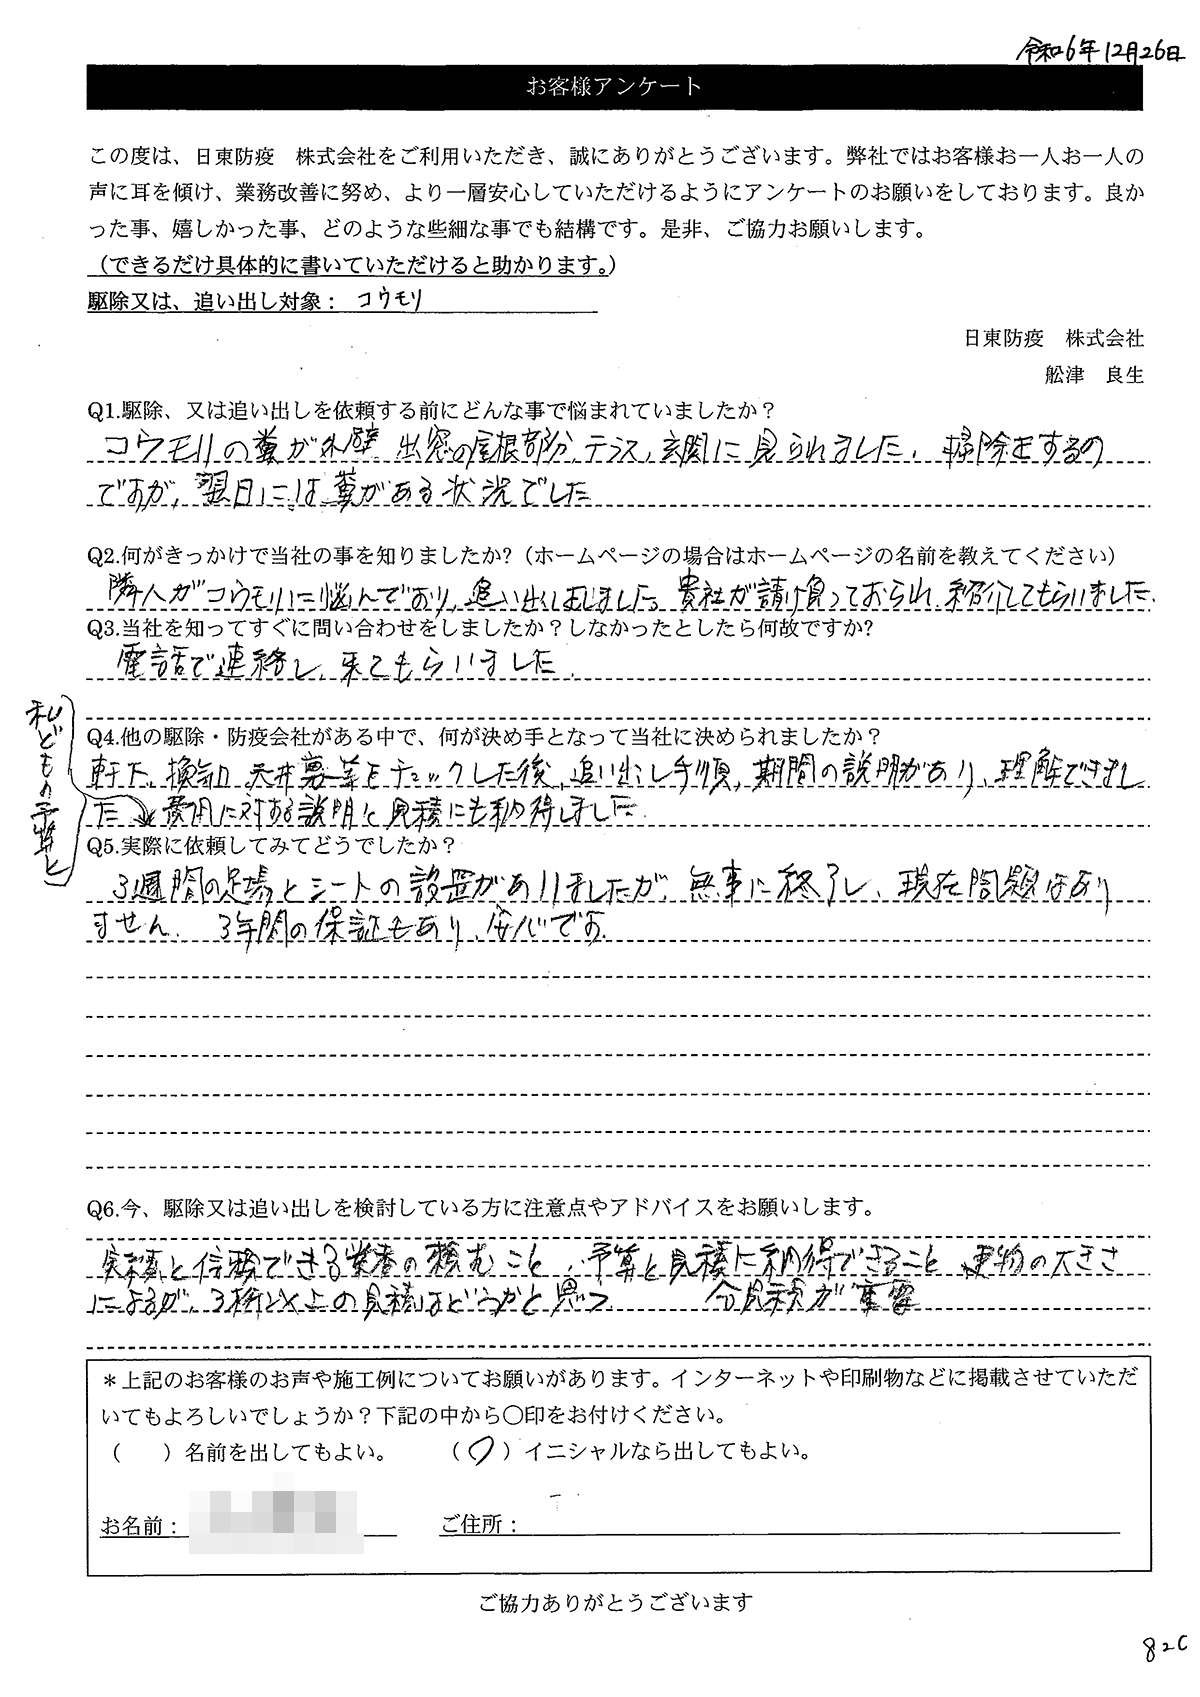 令和6年12月26日
お客様アンケート
この度は、日東防疫　株式会社をご利用いただき、誠にありがとうございます。弊社ではお客様お一人お一人の
声に耳を傾け、業務改善に努め、より一層安心していただけるようにアンケートのお願いをしております。良か
った事、嬉しかった事、どのような些細な事でも結構です。是非、ご協力お願いします。
（できるだけ具体的に書いていただけると助かります。）
駆除又は、追い出し対象： コウモリ
日東防疫　株式会社
舩津　良生
Q1.駆除、又は追い出しを依頼する前にどんな事で悩まれていましたか？
コウモリの糞が外壁 出窓の屋根部分、テラス、玄関に見られました。掃除をするの
ですが、翌日には糞がある状況でした
Q2.何がきっかけで当社の事を知りましたか?（ホームページの場合はホームページの名前を教えてください）
隣人がコウモリに悩んでおり、追い出しをしました。貴社が請け負っておられ、紹介してもらいました。
Q3.当社を知ってすぐに問い合わせをしましたか？しなかったとしたら何故ですか?
電話で連絡し、来てもらいました。
Q4.他の駆除・防疫会社がある中で、何が決め手となって当社に決められましたか？
軒下、換気口、天井裏等をチェックした後、追い出し手順、期間の説明があり、理解できまし
た 費用に対する説明と見積にも納得しました
私どもの予算と
Q5.実際に依頼してみてどうでしたか？
3週間の足場とシートの設置がありましたが、無事に終了し、現在問題はあり
ません。3年間の保証もあり、安心です。
Q6.今、駆除又は追い出しを検討している方に注意点やアドバイスをお願いします。
実績と信頼できる業者の頼むこと、予算と見積に納得できること 建物の大きさ
によるが、3桁以上の見積はどうかと思う
＊上記のお客様のお声や施工例についてお願いがあります。インターネットや印刷物などに掲載させていただ
いてもよろしいでしょうか？下記の中から〇印をお付けください。
（　）名前を出してもよい。　（〇）イニシャルなら出してもよい。
お名前：　ご住所：
ご協力ありがとうございます